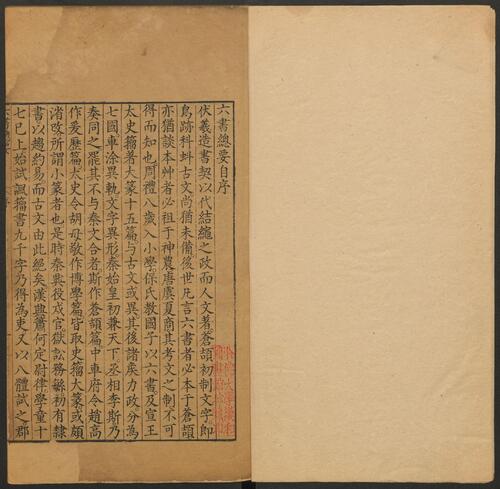 六書總要自序
伏羲造書契以代結繩之政而人文著蒼頡初制文字即
鳥跡科蚪古文尚猶未備後世凡言六書者必本于蒼頡
亦猶談本艸者必祖于神農唐虞夏商其考文之制不可
得而知也周禮八歲入小學保氏教國子以六書及宣王
太史籀著大篆十五篇与古文或異其後諸矦力政分為
七國車涂異軌文字異形秦始皇初兼天下丞相李斯乃
奏同之罷其不与秦文合者斯作蒼頡篇中車府令趙高
作爰歷篇太史令胡母敬作博學篇皆取史籀大篆或頗
渻改所謂小篆者也是時秦興役戍官獄訟務繇初有隸
書以趨約易而古文由此絕矣漢興蕭何定尉律學童十
七已上始試諷籀書九千字乃得為吏又以八體試之郡